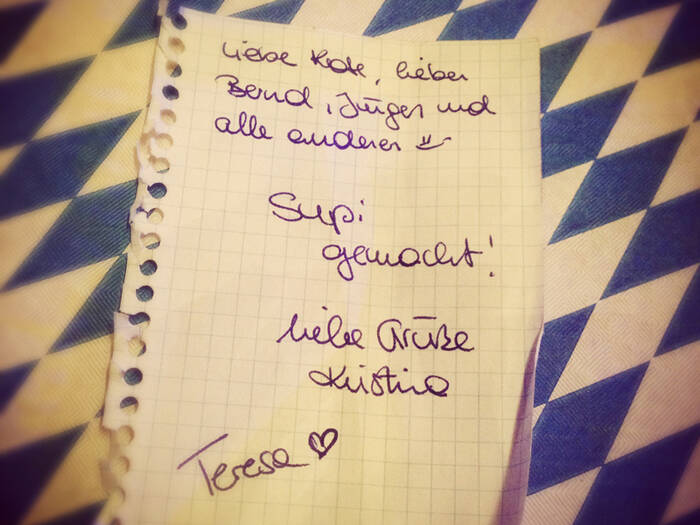 Liebe Kate, lieber
Bernd, Jürgen und
alle anderen
Supi
gemacht!
Liebe Grüße
Kristina
Teresa ♡